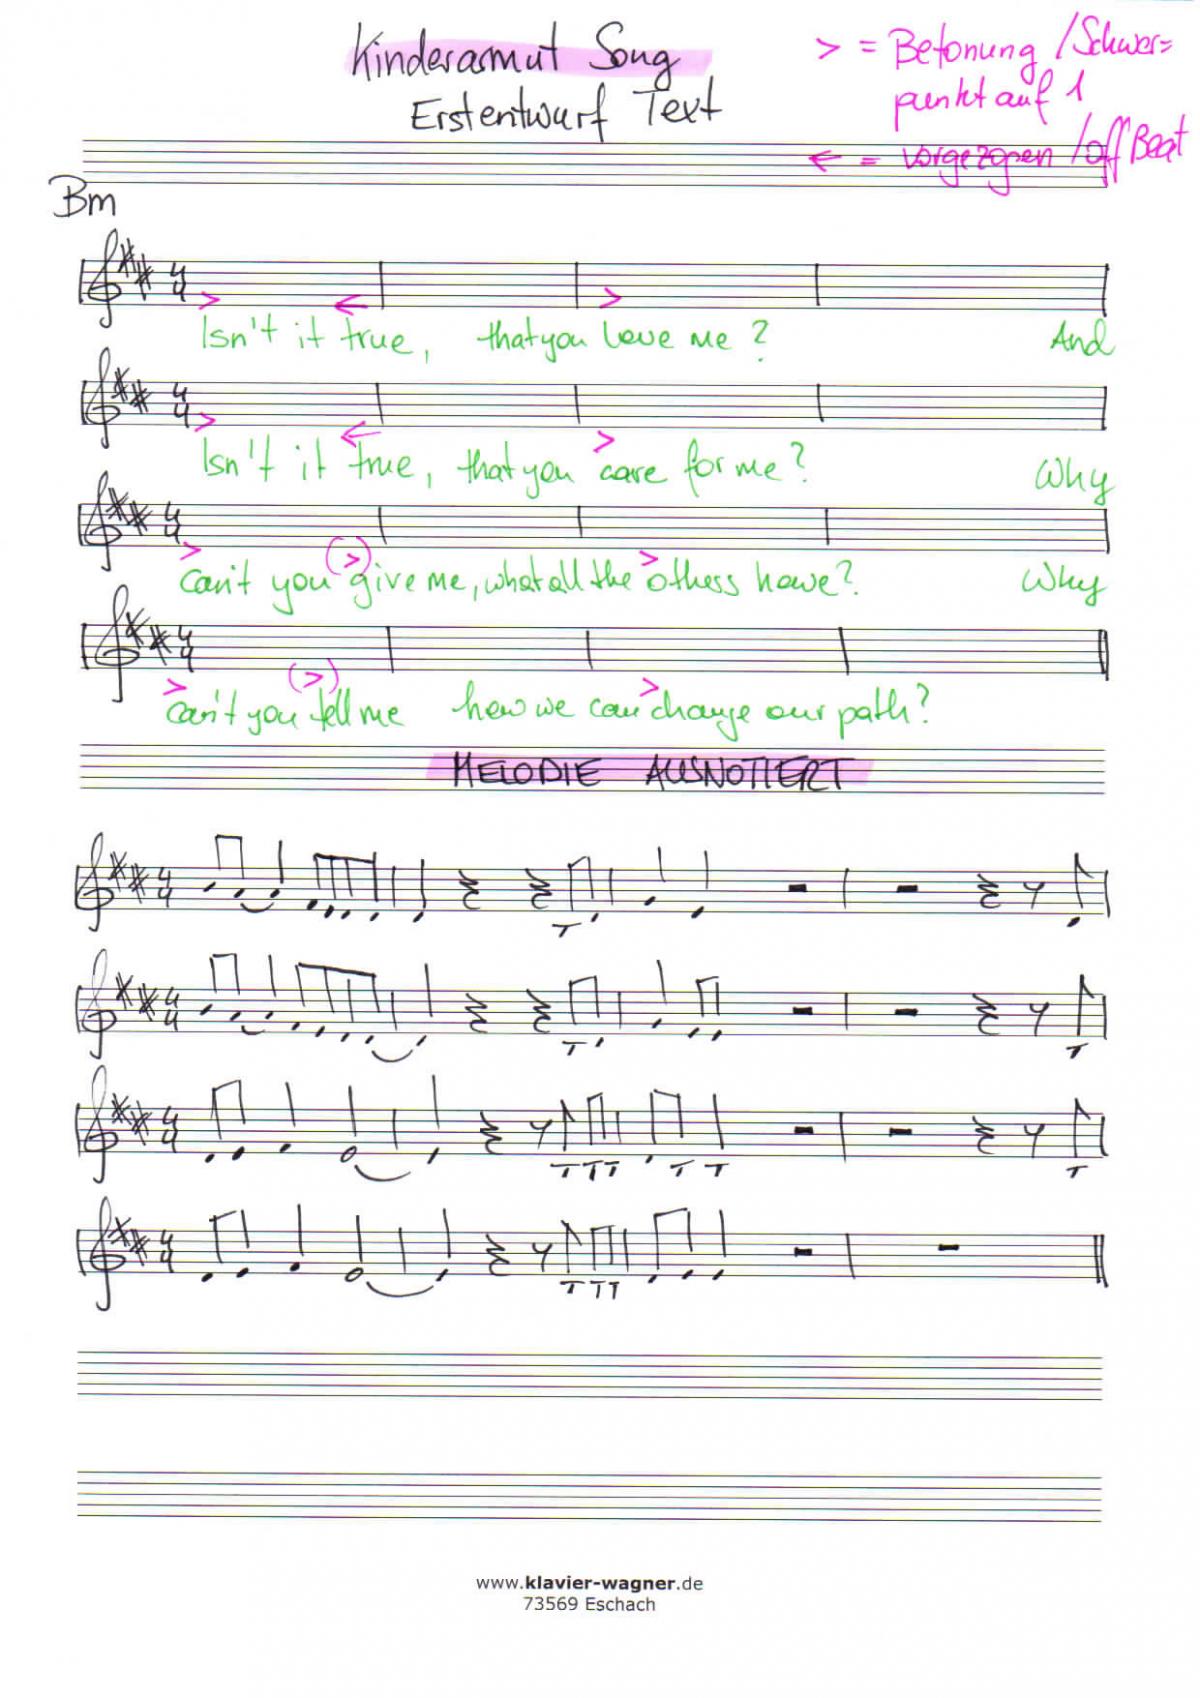 Kinderarmut Song
Erstentwurf Text
> = Betonung / Schwer=
punkt auf 1
← = vorgezogen / off Beat
Bm
Isn't it true, that you love me? And
Isn't it true, that you care for me? Why
can't you give me, what all the others have? Why
can't you tell me how we can change our path?
MELODIE AUSNOTIERT
www.klavier-wagner.de
73569 Eschach